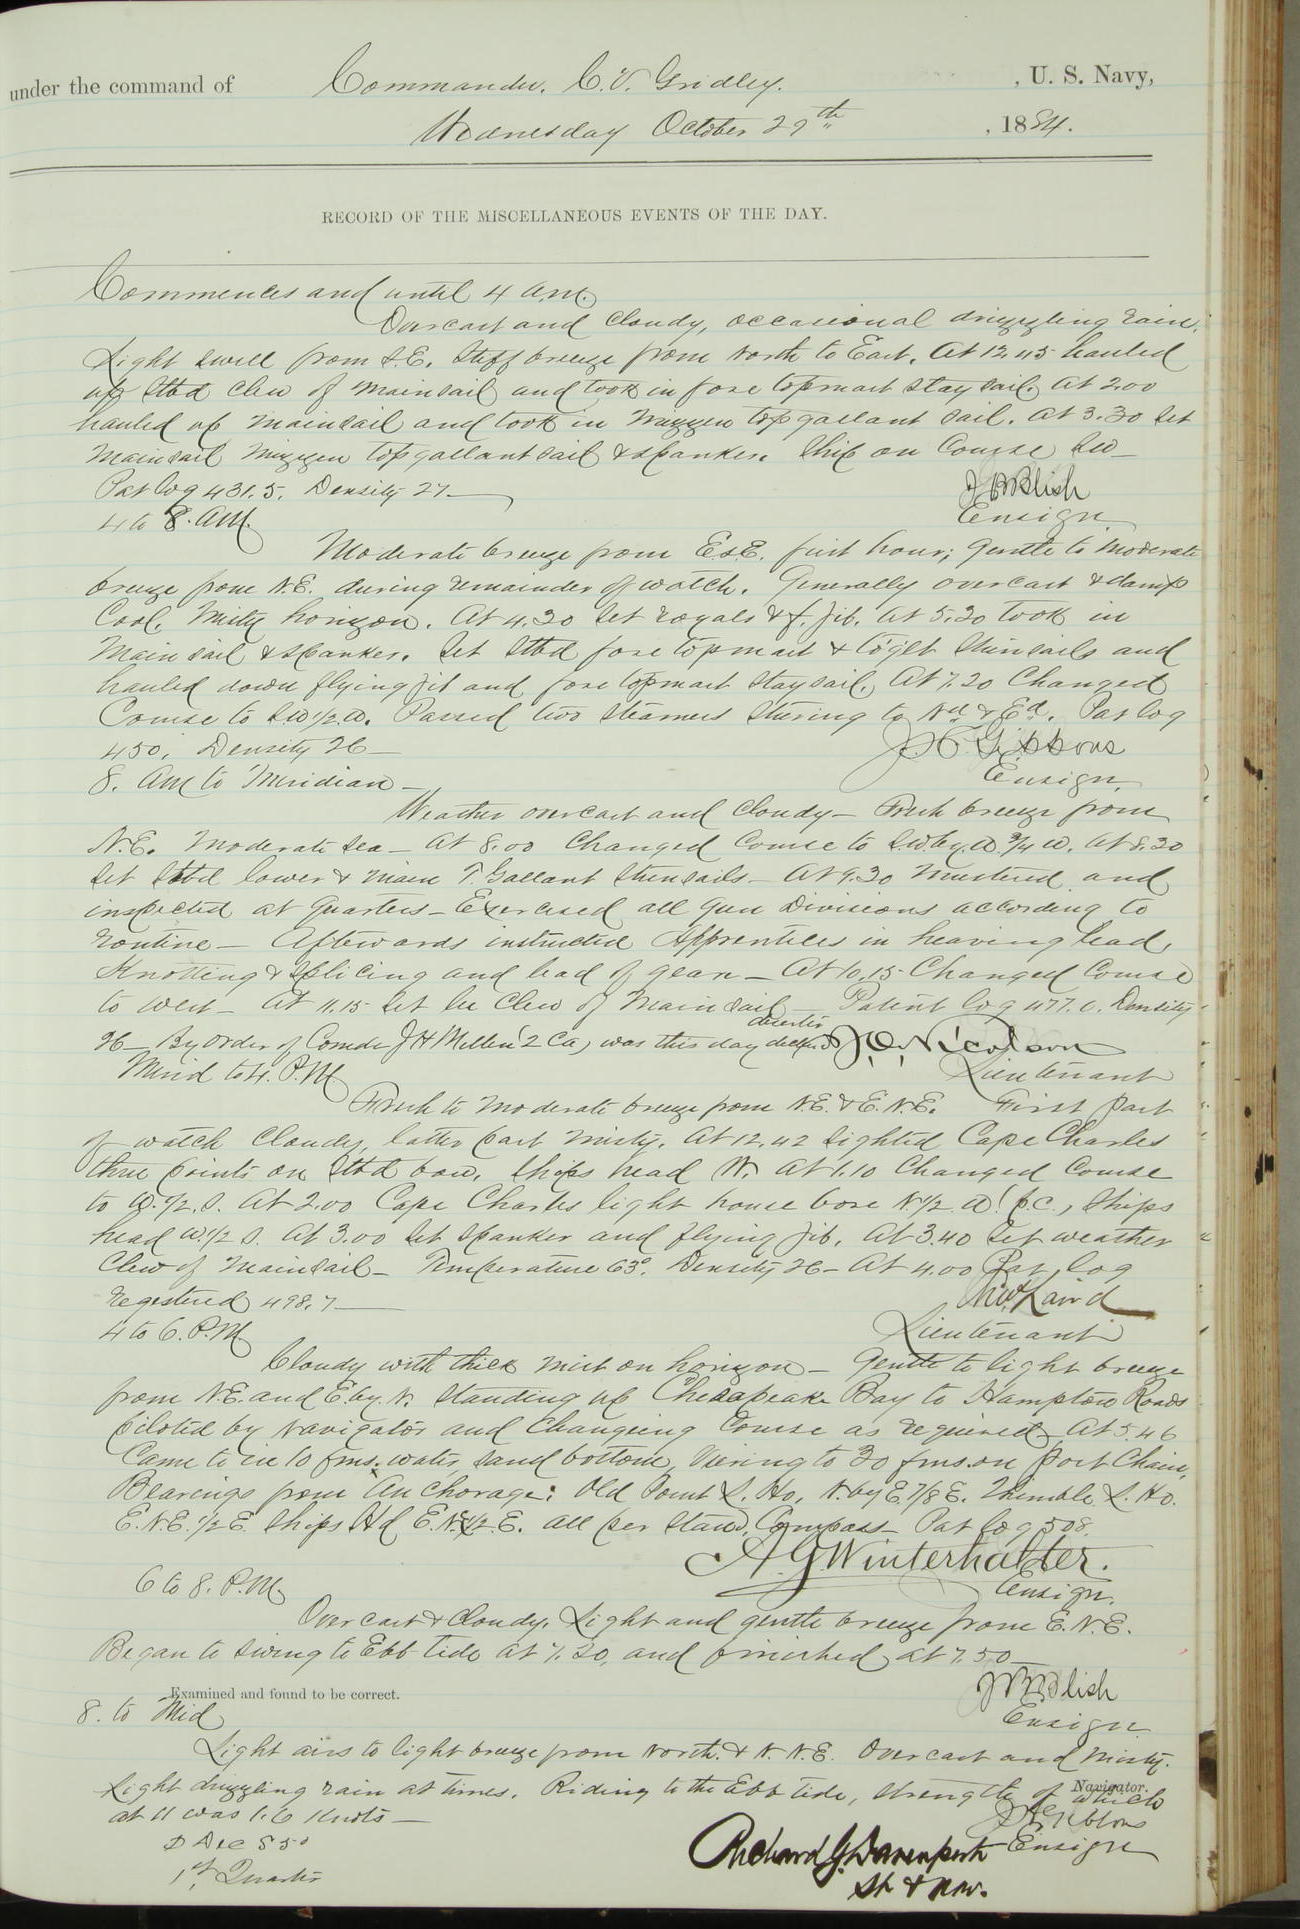 under the command of Commander. C. V. Gridley. , U. S. Navy,
Wednesday October 29th , 1884.
RECORD OF THE MISCELLANEOUS EVENTS OF THE DAY.
Commences and until 4 a.m.
Overcast and cloudy, occasional drizzling rain.
Light swell from S.E. Stiff breeze from North to East. At 12.45 hauled
up Stbd clew of mainsail and took in fore topmast stay sail. At 2.00
hauled up mainsail and took in mizzen topgallant sail. At 3.30 set
mainsail mizzen topgallant sail & spanker. Ship on Course SW—
Pat log 431.5. Density 27—
J B Blish
Ensign
4 to 8. AM.
Moderate breeze from EsE. first hour; gentle to moderate
breeze from N.E. during remainder of watch. Generally overcast & damp
Cool. Misty horizon. At 4.30 set royals & f. jib. At 5.30 took in
Mainsail & spanker. Set Stbd fore topmast & to'glt stunsails and
hauled down flying jib and fore topmast staysail. At 7.20 Changed
Course to SW 1/2 W. Passed two steamers steering to Nd & Ed. Pat log
450; Density 26—
J. H. Gibbons
Ensign.
8. Am to Meridian—
Weather overcast and cloudy— Fresh breeze from
N.E. Moderate sea— At 8.00 Changed Course to S.W. by W 3/4 W. At 8.30
set Stbd lower & main T. Gallant stunsails— At 9.30 Mustered and
inspected at Quarters— Exercised all gun divisions according to
routine— Afterwards instructed Apprentices in heaving lead,
Knotting & splicing and lead of gear— At 10.15 Changed Course
to west— At 11.15 set lee Clew of Mainsail— Patent log 477.0. Density
26— By order of Comdr J H Mellen (2 Ca) was this day declared deserter
J. O. Nicolson
Lieutenant
Merid to 4. P.M
Fresh to moderate breeze from N.E. & E.N.E. First part
of watch cloudy, latter part misty. At 12.42 sighted Cape Charles
three points on Stbd bow. Ships head W. At 1.10 Changed Course
to W. 1/2. S. At 2.00 Cape Charles light house bore N 1/2 W. (p.c.), Ships
head W. 1/2 S. At 3.00 set spanker and flying jib. At 3.40 set weather
Clew of Mainsail— Temperature 63°. Density 26— At 4.00 Pat log
registered 498.7—
Laird
Lieutenant
4 to 6. P.M
Cloudy with thick mist on horizon— Gentle to light breeze
from N.E. and E. by N. Standing up Chesapeake Bay to Hampton Roads
piloted by navigator and changing Course as required— At 5.46
Came to in 10 fms. water, sand bottom, veering to 30 fms. on port Chain.
Bearings from Anchorage: Old Point L. Ho. N. by E. 7/8 E. Thimble L. Ho.
E.N.E. 1/2 E. Ships Hd E.N.E. 1/2. E. all per stand. Compass— Pat log 508.
A. G. Winterhalter.
Ensign.
6 to 8. P.M.
Overcast & cloudy. Light and gentle breeze from E.N.E.
Began to swing to Ebb tide at 7.20, and finished at 7.50—
J B Blish
Ensign
Examined and found to be correct.
8. to Mid
Light airs to light breeze from North. & N.N.E. Overcast and misty.
Light drizzling rain at times. Riding to the Ebb tide, strength of which
Navigator.
at 11 was 1.6 knots—
J H Gibbons
Ensign
Dec S 5°
1st Quarter
Richard G. Davenport
Lt & Nav.